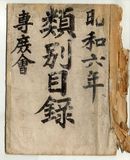 昭和六年
類別目録
專度會